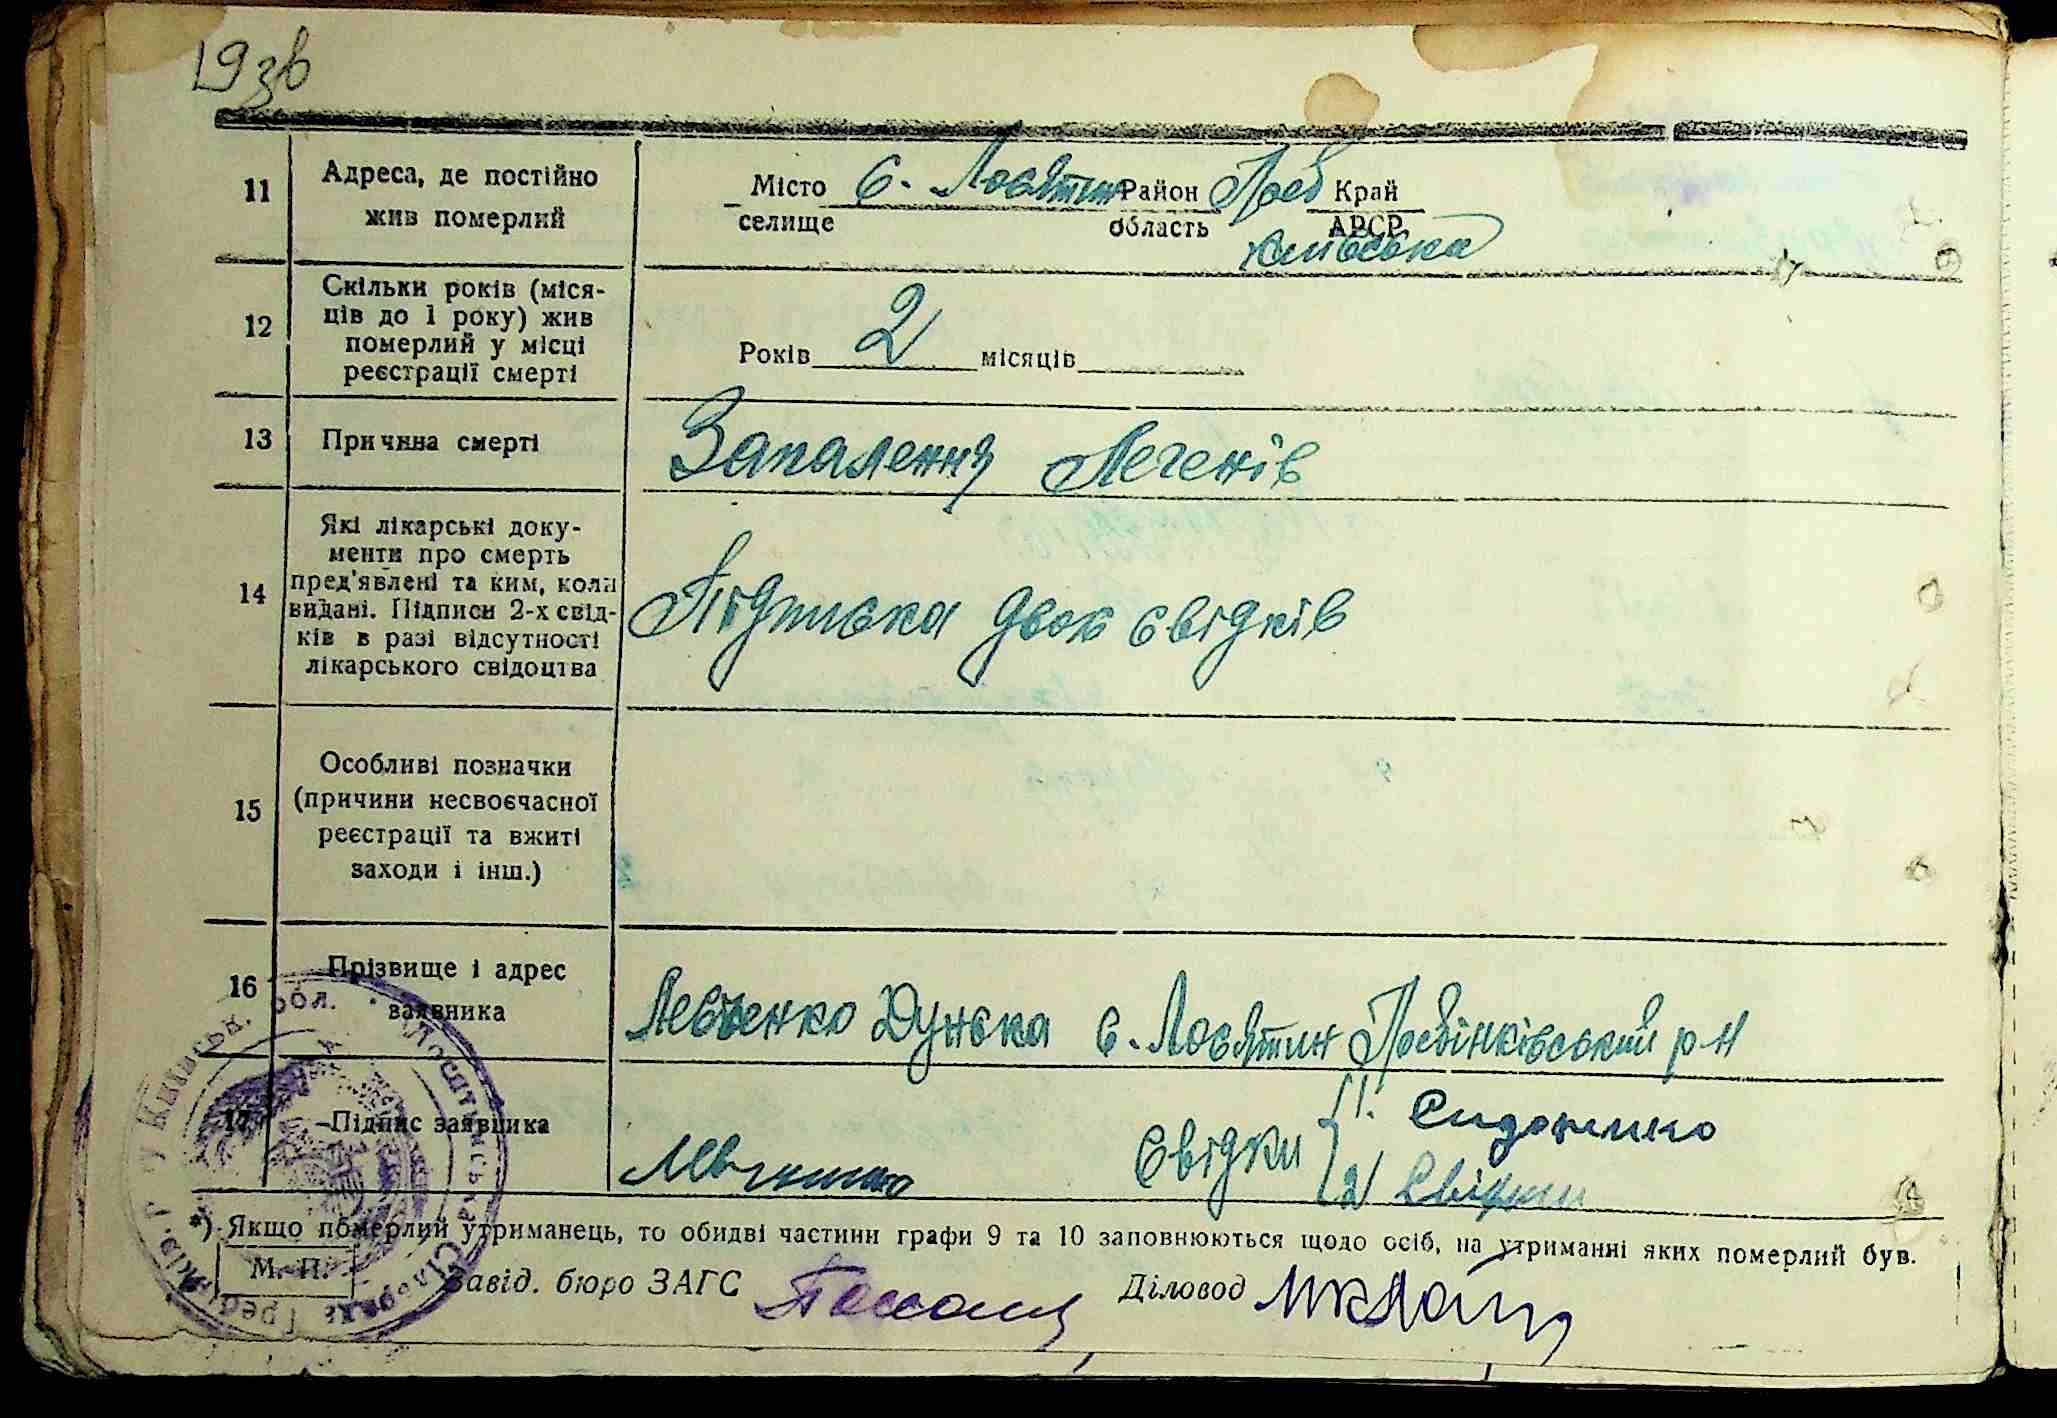 19зв
11 Адреса, де постійно жив померлий
Місто селище с. Лосятин Район область Греб Край АРСР
Київська
12 Скільки років (міся-
ців до 1 року) жив
померлий у місці
реєстрації смерті
Років 2 місяців
13 Причина смерті Запалення Легенів
14 Які лікарські доку-
менти про смерть
пред'явлені та ким, коли
видані. Підписи 2-х свід-
ків в разі відсутності
лікарського свідоцтва
Підписка двох свідків
15 Особливі позначки
(причини несвоєчасної
реєстрації та вжиті
заходи і інш.)
16 Прізвище і адрес
заявника
Левченко Дунька с. Лосятин Гребінківський р-н
17 Підпис заявника
Свідки 1. Сидоренко
2)
*) Якщо померлий утриманець, то обидві частини графи 9 та 10 заповнюються щодо осіб, на утриманні яких померлий був.
М. П.
Завід. бюро ЗАГС
Діловод